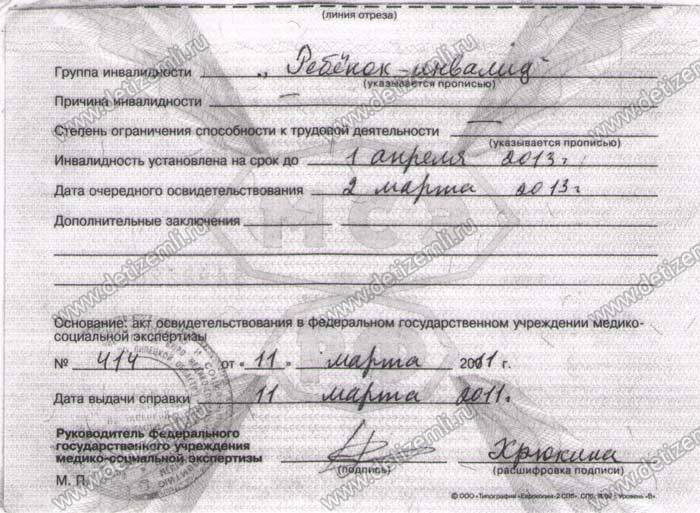 (линия отреза)
Группа инвалидности „Ребёнок-инвалид"
(указывается прописью)
Причина инвалидности —
Степень ограничения способности к трудовой деятельности —
(указывается прописью)
Инвалидность установлена на срок до 1 апреля 2013 г
Дата очередного освидетельствования 2 марта 2013 г
Дополнительные заключения —
МСЭ
Основание: акт освидетельствования в федеральном государственном учреждении медико-
социальной экспертизы
РФ
№ 414 от « 11 » марта 2011 г.
Дата выдачи справки 11 марта 2011 г
Руководитель федерального
государственного учреждения
медико-социальной экспертизы Хрюкина
(подпись) (расшифровка подписи)
М. П.
www.detizemli.ru